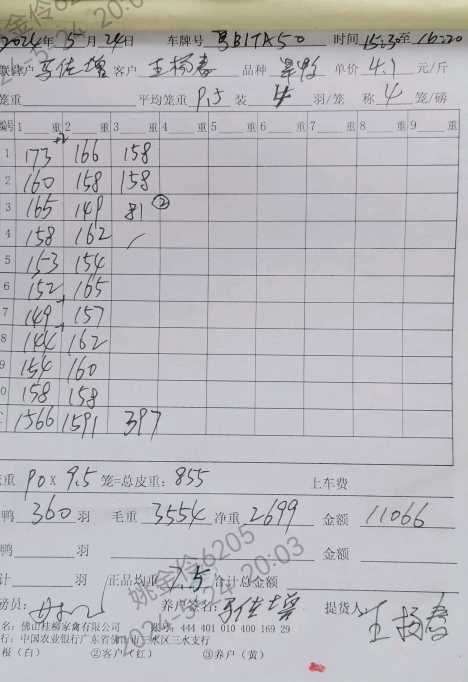 2024年5月24日 车牌号 粤B1TA50 时间 15:30至16:20
客户 王杨春 品种 单价 4.1 元/斤
笼重 平均笼重 9.5 装 4 羽/笼 称 4 笼/磅
编号 1 重 2 重 3 重 4 重 5 重 6 重 7 重 8 重 9 重
1 173 166 158
2 160 158 158
3 165 149 81 ②
4 158 162
5 153 154
6 152 165
7 149 157
8 144 162
9 154 160
0 158 158
1566 1591 397
重 90 × 9.5 笼=总皮重: 855 上车费
鸭 360 羽 毛重 3554 净重 2699 金额 11066
鸭 羽 金额
计 羽 正品均重 7.5 合计总金额
姚金伶6205
2024-5-24 20:03
务员: 养户签名: 提货人: 王杨春
名: 佛山桂柳家禽有限公司 账号: 444 401 010 400 169 29
行: 中国农业银行广东省佛山市三水区三水支行
根(白) ②客户(红) ③养户(黄)